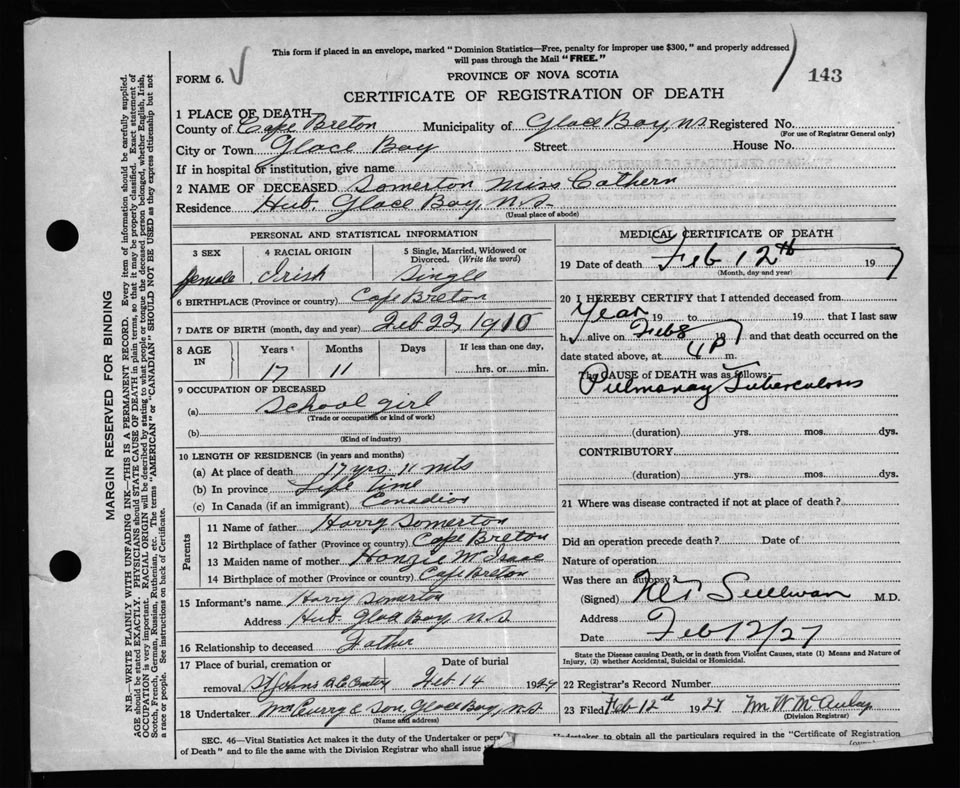 This form if placed in an envelope, marked "Dominion Statistics—Free, penalty for improper use $300," and properly addressed
will pass through the Mail "FREE."
FORM 6. PROVINCE OF NOVA SCOTIA 143
CERTIFICATE OF REGISTRATION OF DEATH
1 PLACE OF DEATH
County of Cape Breton Municipality of Glace Bay, N.S. Registered No.
(For use of Registrar General only)
City or Town Glace Bay Street House No.
If in hospital or institution, give name
2 NAME OF DECEASED Somerton Miss Cathern
Residence Hub. Glace Bay, N.S.
(Usual place of abode)
PERSONAL AND STATISTICAL INFORMATION
3 SEX 4 RACIAL ORIGIN 5 Single, Married, Widowed or
Divorced. (Write the word)
female Irish Single
6 BIRTHPLACE (Province or country) Cape Breton
7 DATE OF BIRTH (month, day and year) Feb 22, 1910
8 AGE IN Years Months Days If less than one day,
17 11 hrs. or min.
9 OCCUPATION OF DECEASED
(a) School girl
(Trade or occupation or kind of work)
(b)
(Kind of industry)
10 LENGTH OF RESIDENCE (in years and months)
(a) At place of death 17 yrs. 11 mts
(b) In province Life time
(c) In Canada (if an immigrant) Canadian
Parents
11 Name of father Harry Somerton
12 Birthplace of father (Province or country) Cape Breton
13 Maiden name of mother McIsaac
14 Birthplace of mother (Province or country) Cape Breton
15 Informant's name Harry Somerton
Address Hub. Glace Bay N.S.
16 Relationship to deceased Father
17 Place of burial, cremation or Date of burial
removal St Johns Feb 14 1927
18 Undertaker Wm Curry & Son, Glace Bay, N.S.
(Name and address)
MEDICAL CERTIFICATE OF DEATH
19 Date of death Feb 12th 19 7
(Month, day and year)
20 I HEREBY CERTIFY that I attended deceased from
Year 19 to 19 that I last saw
h alive on Feb 8 19 7 and that death occurred on the
date stated above, at 4 P m.
The CAUSE of DEATH was as follows:
Pulmonary Tuberculosis
(duration) yrs. mos. dys.
CONTRIBUTORY
(duration) yrs. mos. dys.
21 Where was disease contracted if not at place of death?
Did an operation precede death? Date of
Nature of operation
Was there an autopsy?
(Signed) Sullivan M.D.
Address
Date Feb 12/27
State the Disease causing Death, or in death from Violent Causes, state (1) Means and Nature of
Injury, (2) whether Accidental, Suicidal or Homicidal.
22 Registrar's Record Number
23 Filed Feb 12d 1927 M W McAulay
(Division Registrar)
SEC. 46—Vital Statistics Act makes it the duty of the Undertaker or
of Death" and to file the same with the Division Registrar who shall issue
Undertaker to obtain all the particulars required in the "Certificate of Registration
MARGIN RESERVED FOR BINDING
N.B.—WRITE PLAINLY WITH UNFADING INK—THIS IS A PERMANENT RECORD. Every item of information should be carefully supplied.
AGE should be stated EXACTLY. PHYSICIANS should STATE CAUSE OF DEATH in plain terms, so that it may be properly classified. Exact statement of
OCCUPATION is very important. RACIAL ORIGIN will be described by stating to what people or tongue the deceased person belonged, whether English, Irish,
Scotch, French, German, Russian, Ruthenian, etc. The terms "AMERICAN" or "CANADIAN" SHOULD NOT BE USED as they express citizenship but not
a race or people. See instructions on back of Certificate.